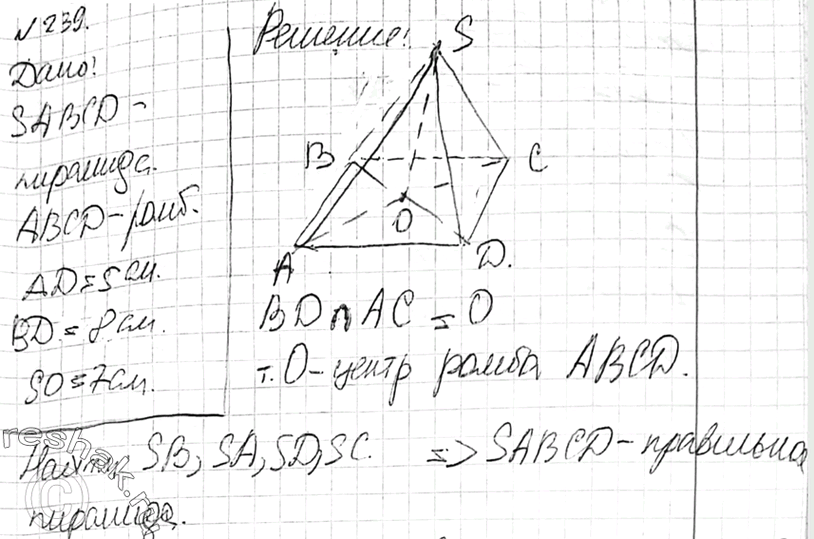 № 239.
Дано:
SABCD -
пирамида.
ABCD - ромб.
AD = 5 см.
BD = 8 см.
SO = 7 см.
Найти: SB, SA, SD, SC.
пирамида.
Решение:
S
B
C
O
A
D.
BD ∩ AC = O
т. O - центр ромба ABCD.
=> SABCD - правильная
reshak.ru